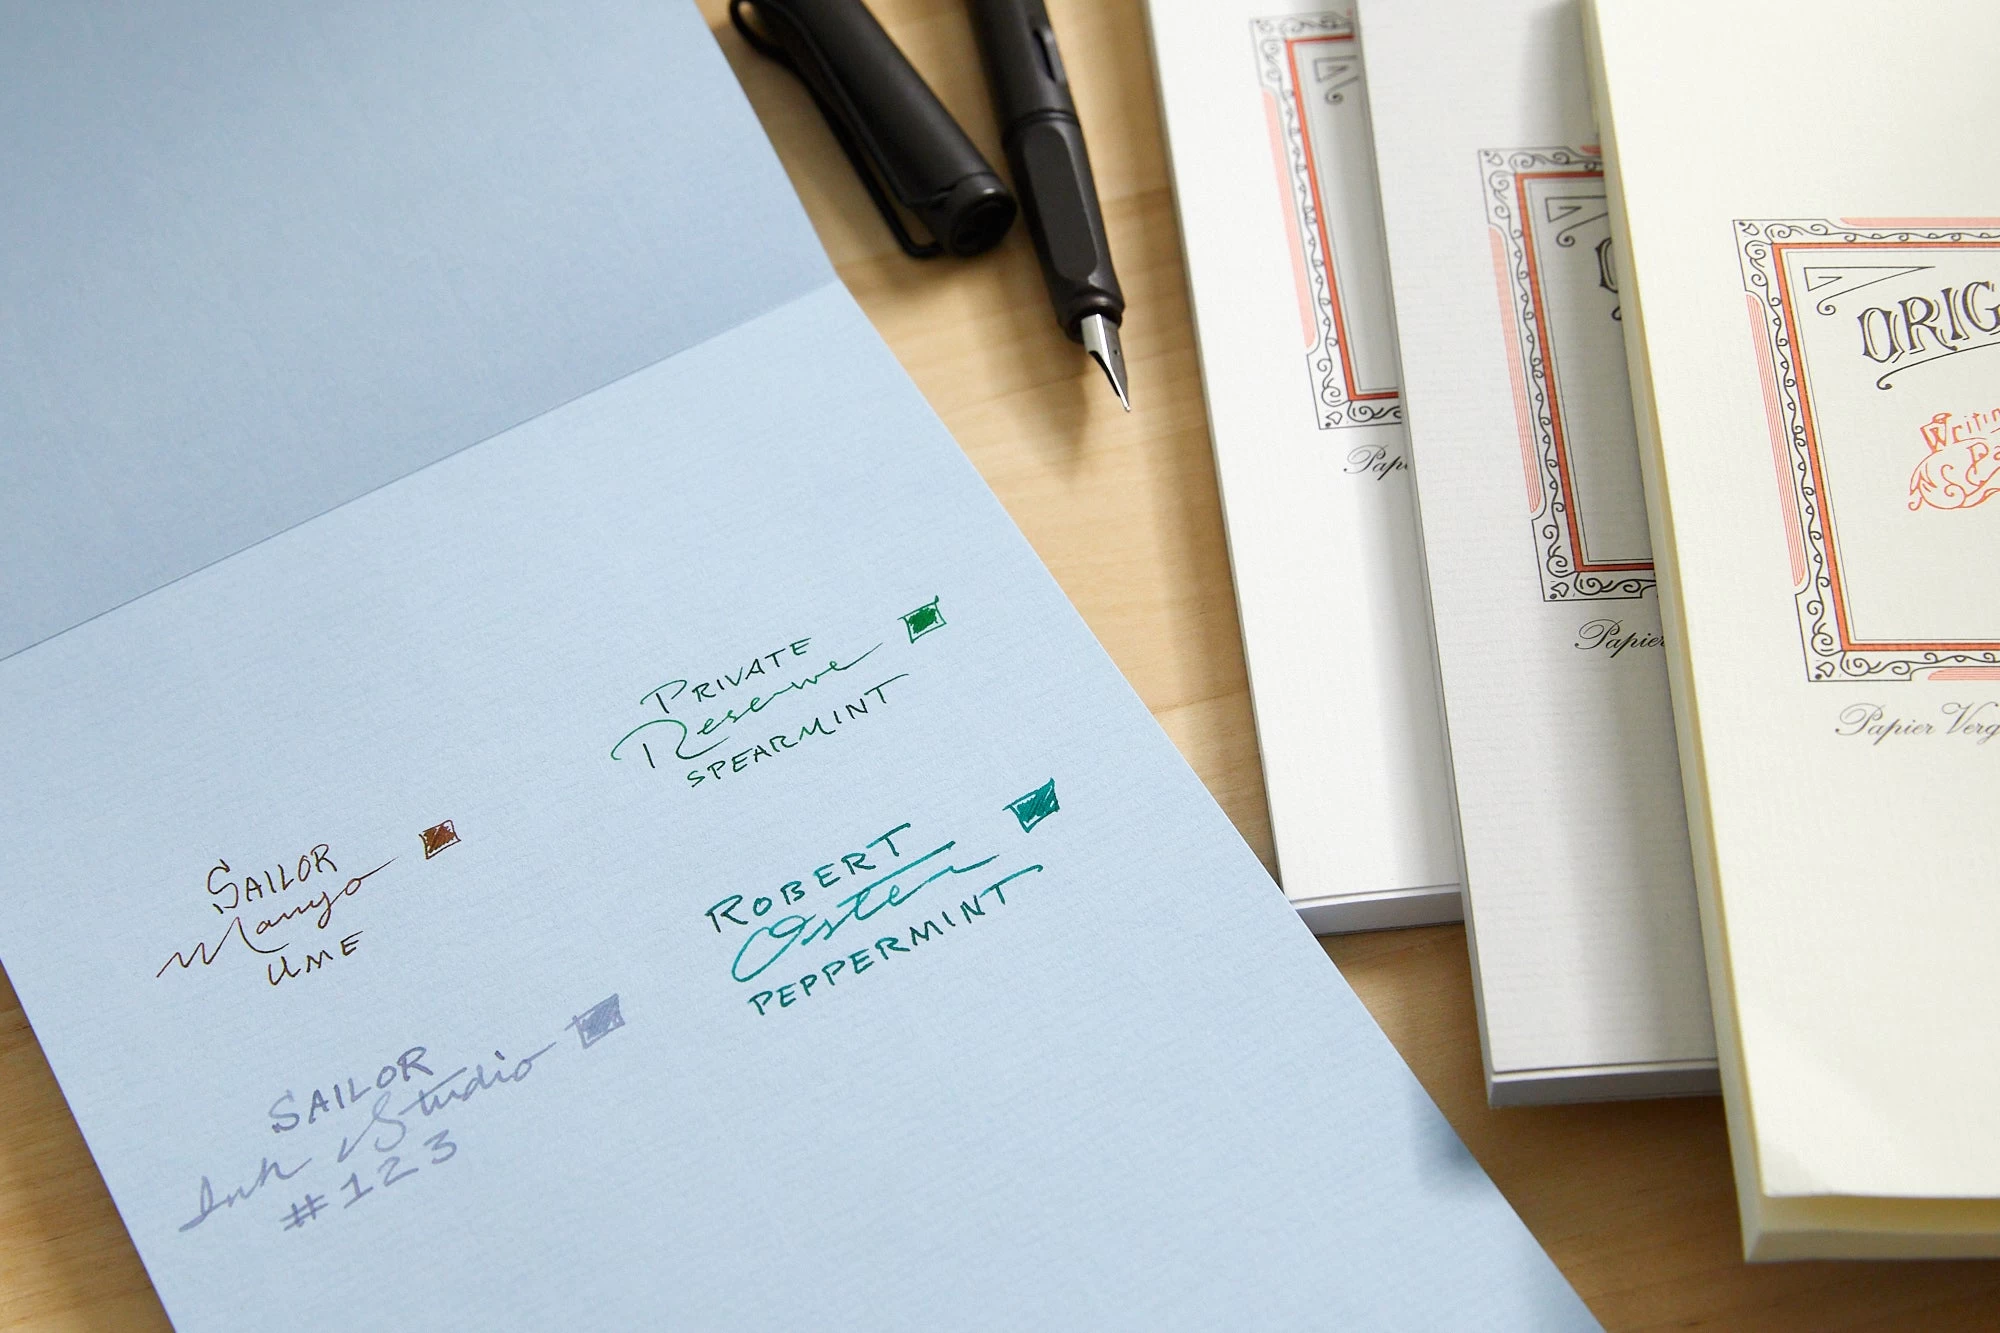 PRIVATE
Reserve
SPEARMINT
SAILOR
Manyo
UME
ROBERT
Oster
PEPPERMINT
SAILOR
Ink Studio
#123
ORIG
Writin
Pa
Papier Verg
Papier
Papi